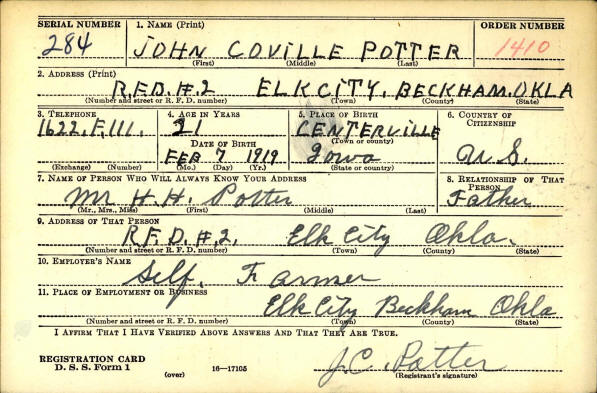 SERIAL NUMBER 1. NAME (Print) ORDER NUMBER
284 JOHN COVILLE POTTER 1410
(First) (Middle) (Last)
2. ADDRESS (Print)
R.F.D. #.2 ELK CITY. BECKHAM. OKLA
(Number and street or R. F. D. number) (Town) (County) (State)
3. TELEPHONE 4. AGE IN YEARS 5. PLACE OF BIRTH 6. COUNTRY OF CITIZENSHIP
1622. F,111. 21 CENTERVILLE
(Town or county)
DATE OF BIRTH
FEB 7 1919 Iowa U.S.
(Exchange) (Number) (Mo.) (Day) (Yr.) (State or country)
7. NAME OF PERSON WHO WILL ALWAYS KNOW YOUR ADDRESS 8. RELATIONSHIP OF THAT PERSON
Mr H. H. Potter Father
(Mr., Mrs., Miss) (First) (Middle) (Last)
9. ADDRESS OF THAT PERSON
R.F.D. #.2. Elk City Okla.
(Number and street or R. F. D. number) (Town) (County) (State)
10. EMPLOYER'S NAME
Self. Farmer
11. PLACE OF EMPLOYMENT OR BUSINESS
Elk City Beckham Okla
(Number and street or R. F. D. number) (Town) (County) (State)
I AFFIRM THAT I HAVE VERIFIED ABOVE ANSWERS AND THAT THEY ARE TRUE.
REGISTRATION CARD
D. S. S. Form 1 (over) 16—17105
J.C. Potter
(Registrant's signature)